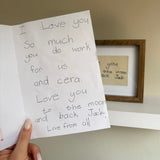 I Love you
So much
you do work
for us
and cera
Love you
to the moon
and back Jack
Love from all